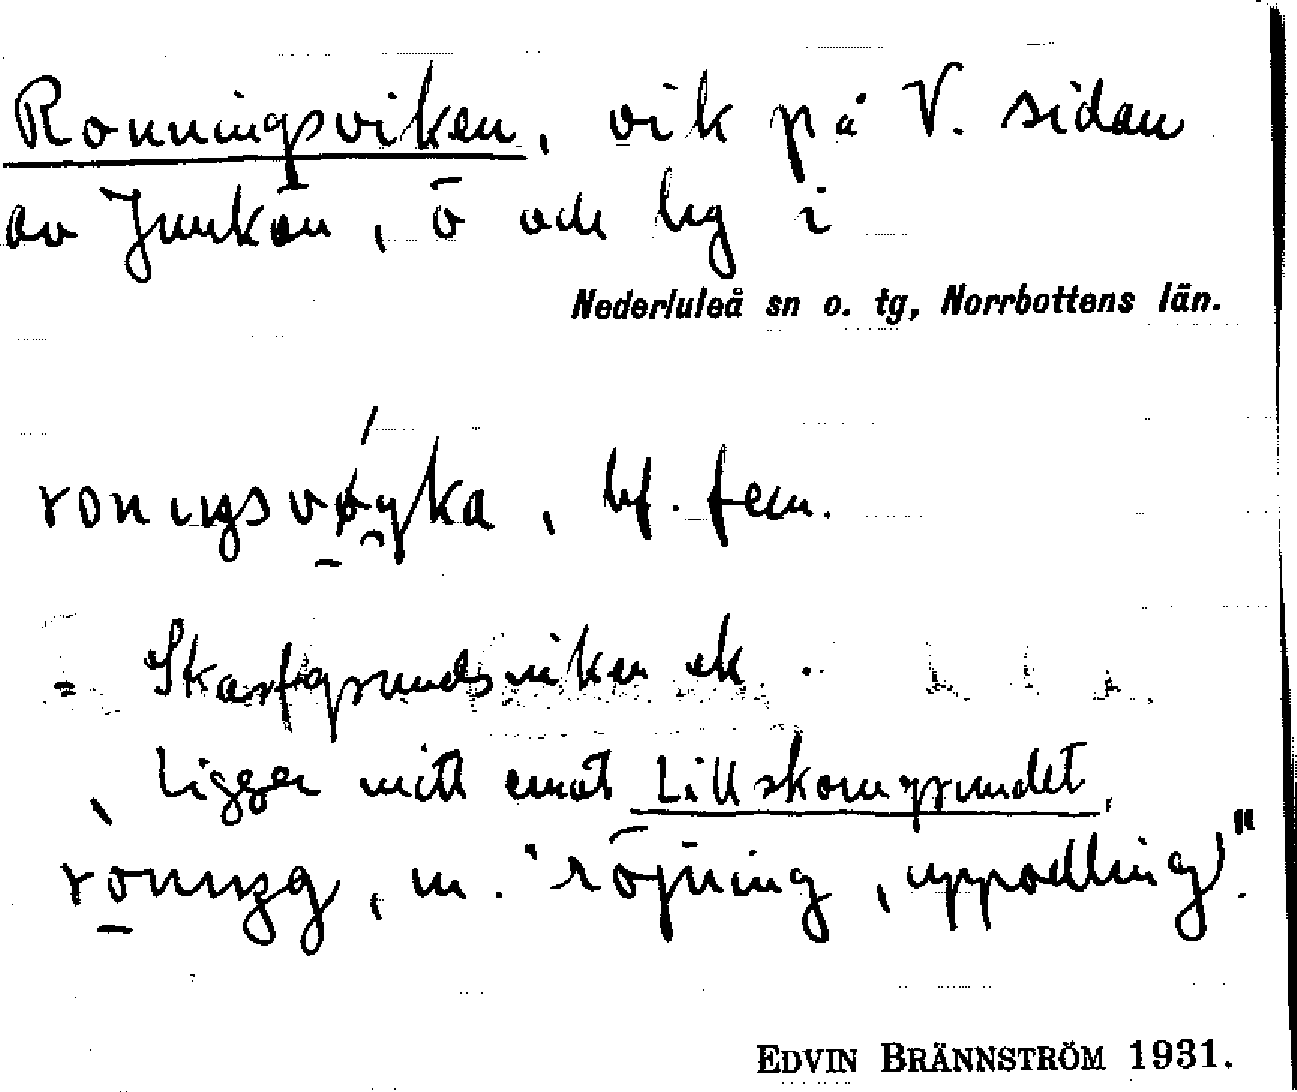 Ronningsviken, vik på V. sidan
av Junkön, ö och lg i
Nederluleå sn o. tg, Norrbottens län.
bf. fem.
= Skarfgrundsviken ek.
Ligger mitt emot Lillskomgrundet,
m. "röjning, uppodling".
EDVIN BRÄNNSTRÖM 1931.